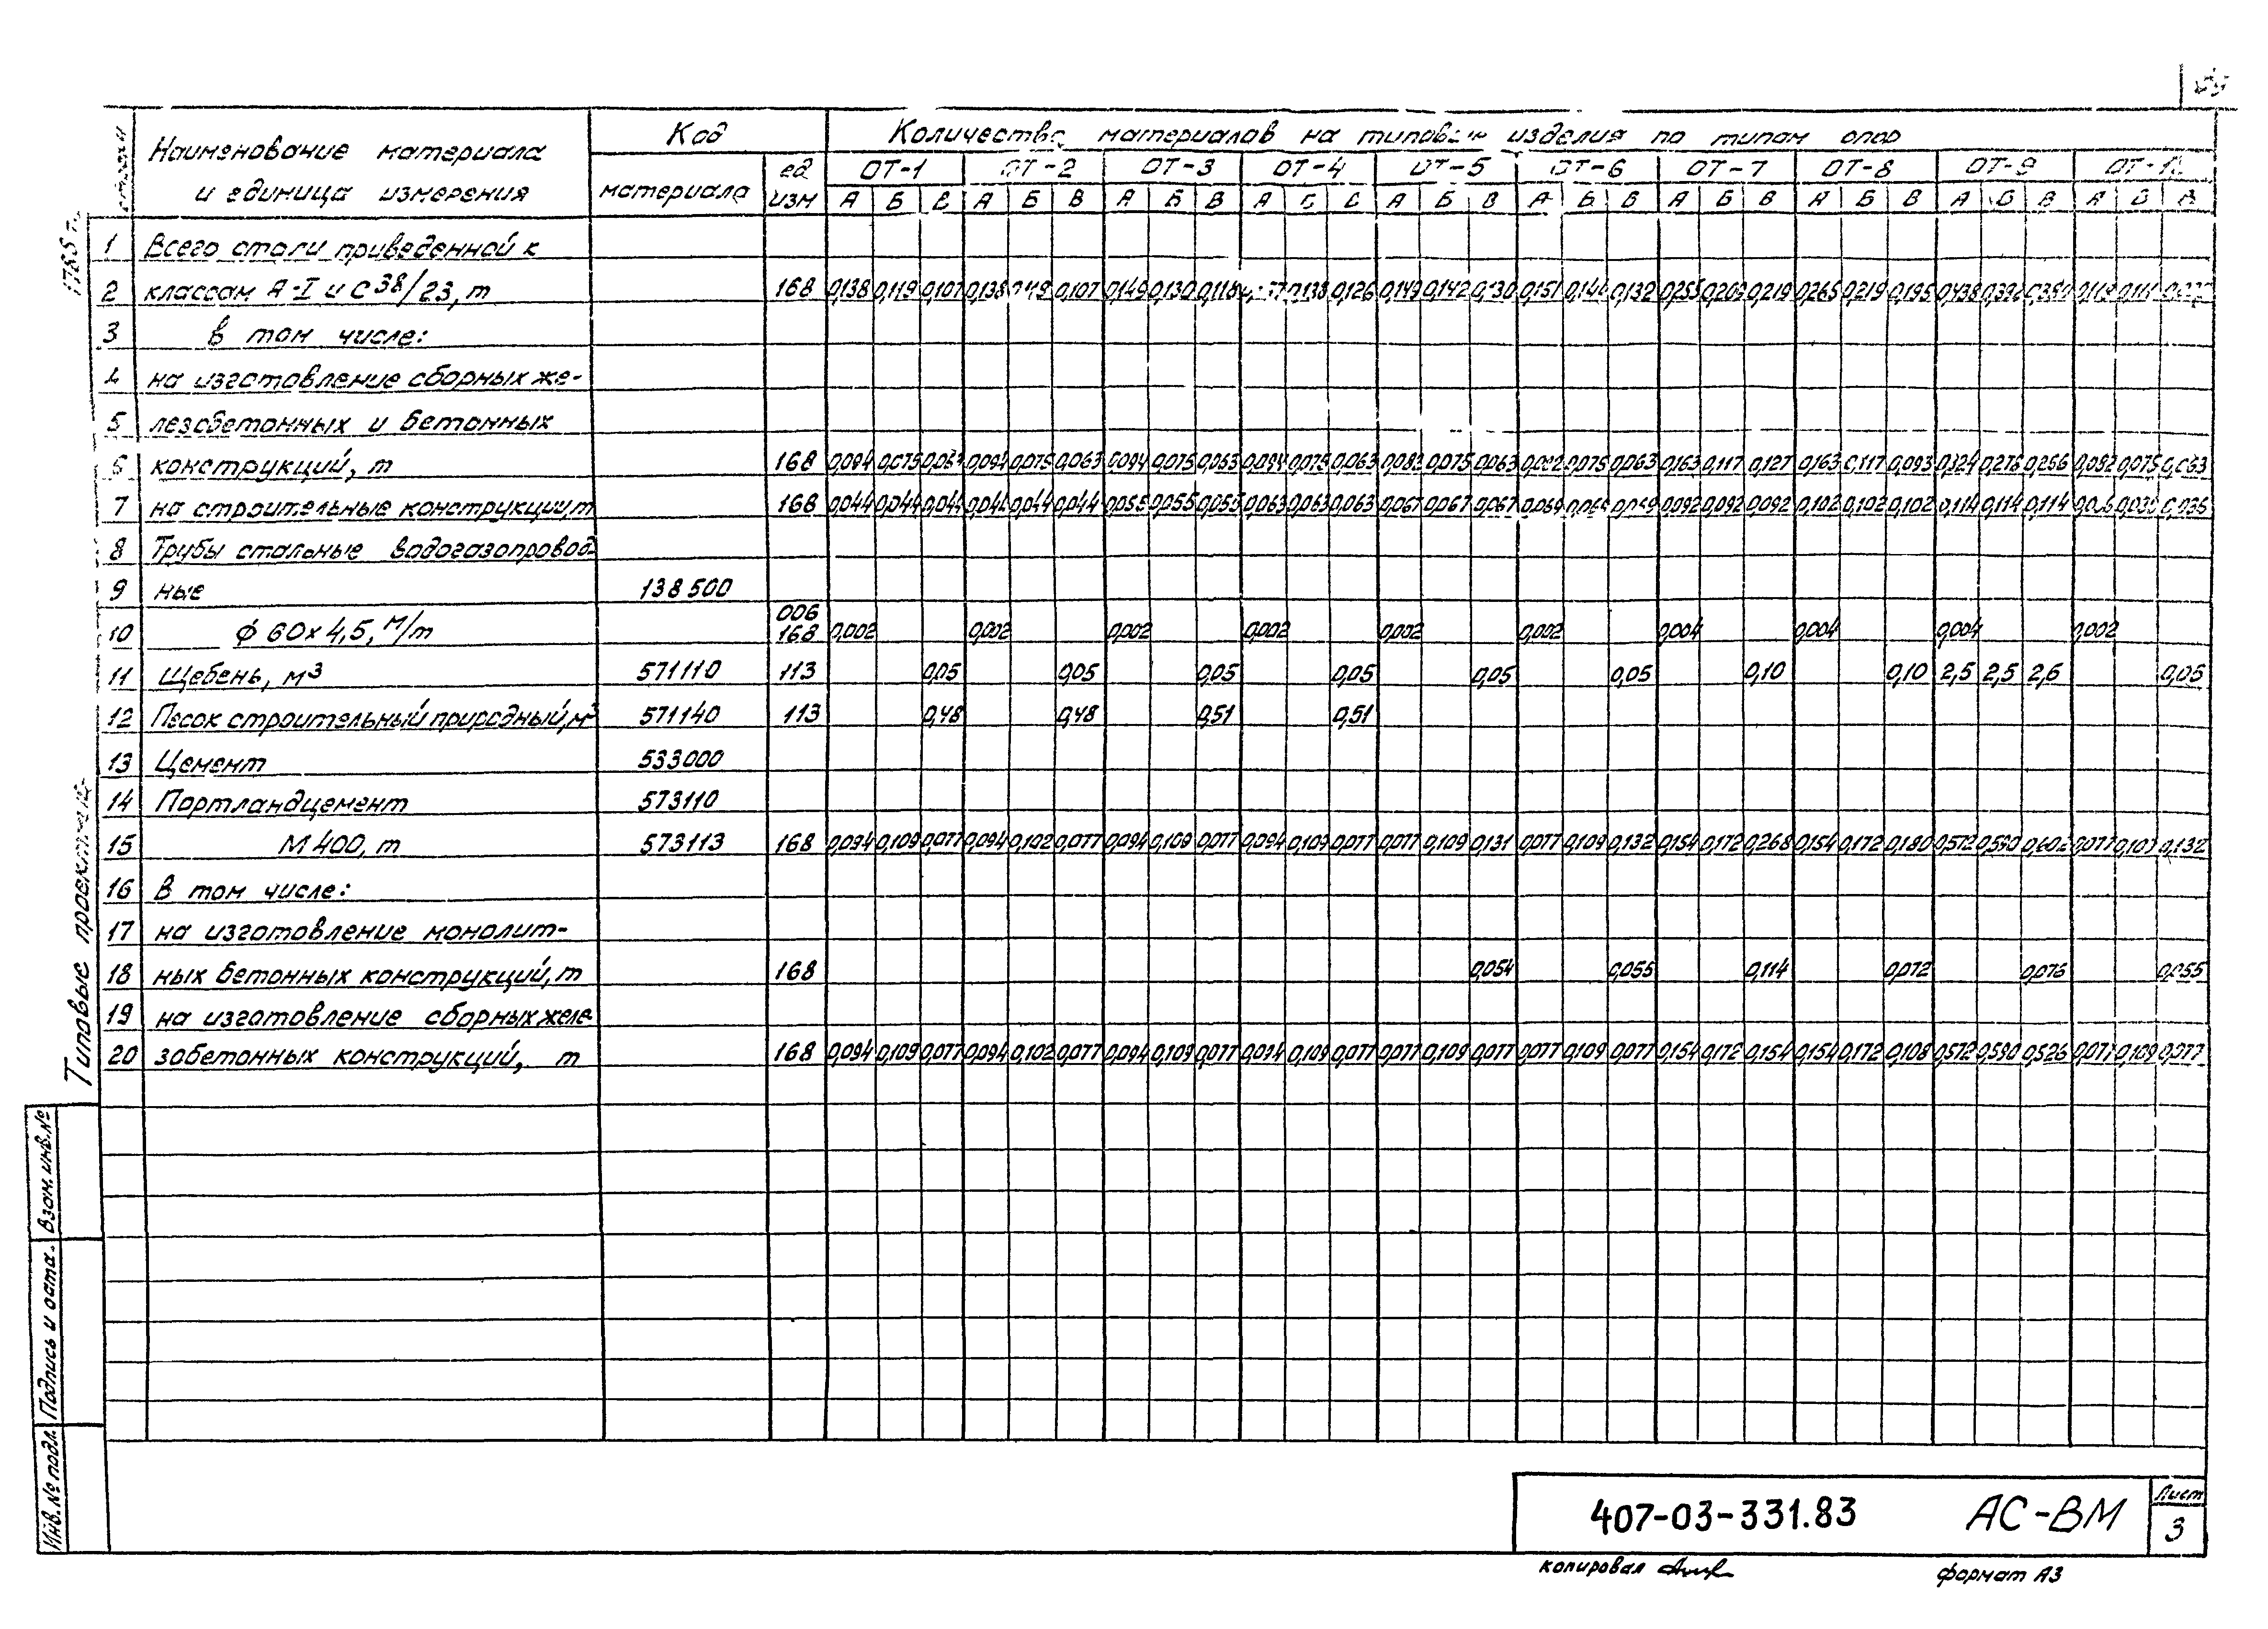 Наименование материала
и единица измерения
Код
материала
ед
изм
Количество материалов на типовые изделия по типам опор
ОТ-1 ОТ-2 ОТ-3 ОТ-4 ОТ-5 ОТ-6 ОТ-7 ОТ-8 ОТ-9
А Б В А Б В А Б В А Б В А Б В А Б В А Б В А Б В А Б В
1 Всего стали приведенной к
2 классам А-I и С38/23, т 168 0,138 0,119 0,107 0,138 0,107 0,149 0,130 0,118 0,138 0,126 0,149 0,142 0,130 0,151 0,144 0,132 0,255 0,209 0,219 0,265 0,219 0,195 0,438
3 в том числе:
4 на изготовление сборных же-
5 лезобетонных и бетонных
6 конструкций, т 168 0,094 0,075 0,063 0,094 0,075 0,063 0,094 0,075 0,063 0,094 0,075 0,063 0,082 0,075 0,063 0,082 0,075 0,063 0,163 0,117 0,127 0,163 0,117 0,093 0,324 0,276 0,266 0,082 0,075 0,063
7 на строительные конструкции, т 168 0,044 0,044 0,044 0,044 0,044 0,044 0,055 0,055 0,055 0,063 0,063 0,063 0,067 0,067 0,067 0,069 0,069 0,069 0,092 0,092 0,092 0,102 0,102 0,102 0,114 0,114 0,114
8 Трубы стальные водогазопровод-
9 ные 138500
10 ф 60х4,5, м/т 006 168 0,002 0,002 0,002 0,002 0,002 0,002 0,004 0,004 0,004 0,002
11 Щебень, м3 571110 113 0,05 0,05 0,05 0,05 0,05 0,05 0,10 0,10 2,5 2,5 2,6 0,05
12 Песок строительный природный, м3 571140 113 0,48 0,48 0,51 0,51
13 Цемент 533000
14 Портландцемент 573110
15 М400, т 573113 168 0,094 0,109 0,077 0,094 0,102 0,077 0,094 0,109 0,077 0,094 0,109 0,077 0,077 0,109 0,131 0,077 0,109 0,132 0,154 0,172 0,268 0,154 0,172 0,180 0,572 0,590 0,602 0,077 0,109 0,132
16 В том числе:
17 на изготовление монолит-
18 ных бетонных конструкций, т 168 0,054 0,055 0,114 0,072 0,076 0,055
19 на изготовление сборных желе-
20 зобетонных конструкций, т 168 0,094 0,109 0,077 0,094 0,102 0,077 0,094 0,109 0,077 0,094 0,109 0,077 0,077 0,109 0,077 0,077 0,109 0,077 0,154 0,172 0,154 0,154 0,172 0,108 0,572 0,590 0,526 0,077 0,109 0,077
Типовые проектные
Взам. инв. №
Подпись и дата.
Инв. № подл.
407-03-331.83 АС-ВМ
Лист
3
копировал
формат А3